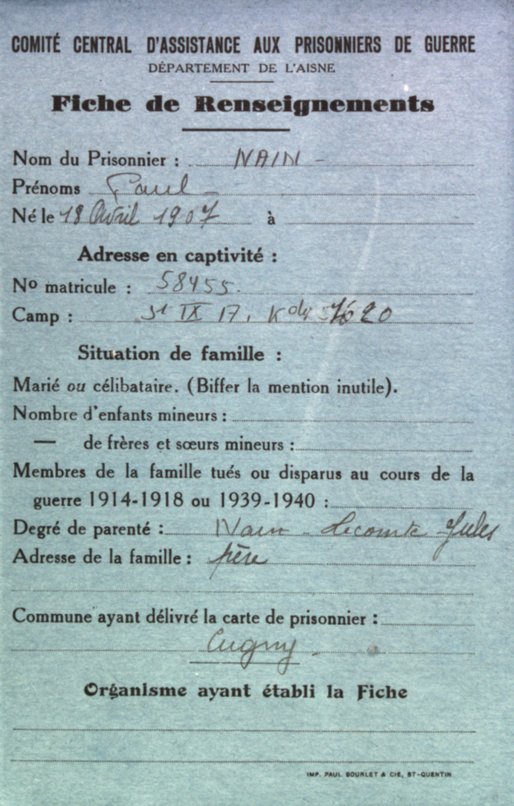 COMITÉ CENTRAL D'ASSISTANCE AUX PRISONNIERS DE GUERRE
DÉPARTEMENT DE L'AISNE
Fiche de Renseignements
Nom du Prisonnier : NAIN -
Prénoms Paul -
Né le 18 Avril 1907 à
Adresse en captivité :
No matricule : 58455.
Camp : IX 17. Kdo
Situation de famille :
Marié ou célibataire. (Biffer la mention inutile).
Nombre d'enfants mineurs :
— de frères et sœurs mineurs :
Membres de la famille tués ou disparus au cours de la
guerre 1914-1918 ou 1939-1940 :
Degré de parenté : Nain - Lecomte Jules
Adresse de la famille : père
Commune ayant délivré la carte de prisonnier :
Cugny -
Organisme ayant établi la Fiche
IMP. PAUL BOURLET & CIE, ST-QUENTIN